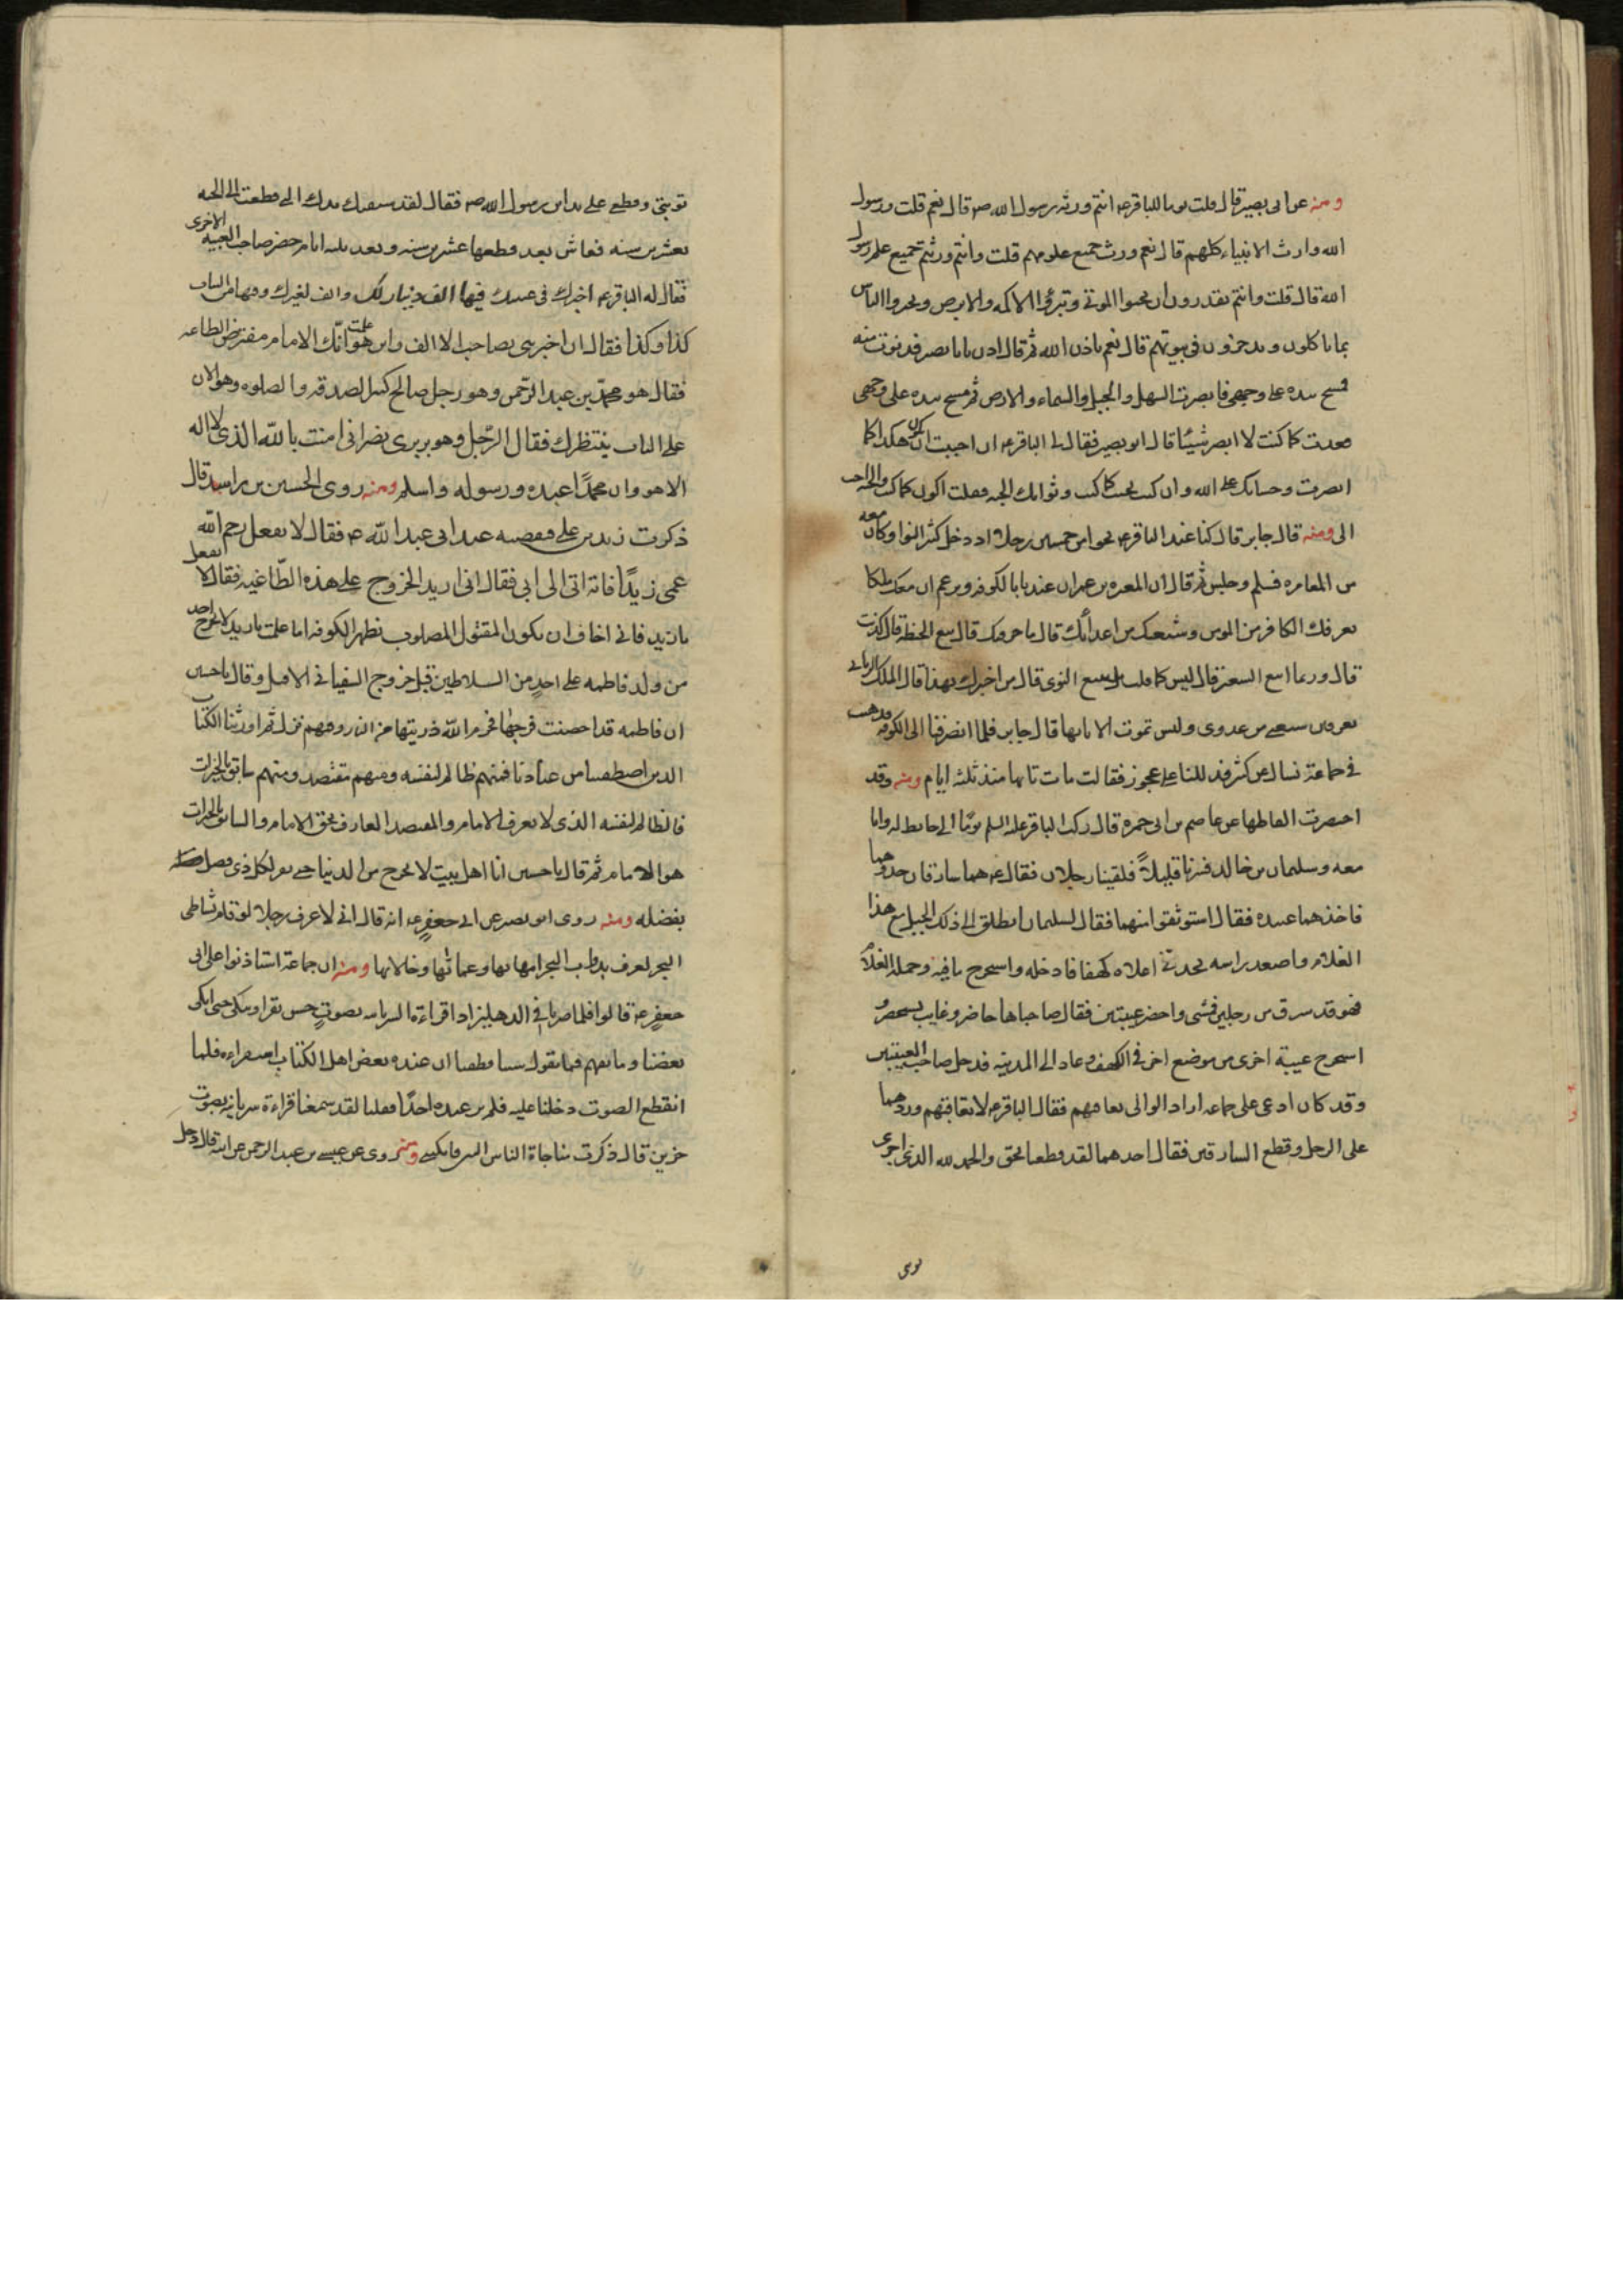 ومنه عن ابى بصير قال قلت يوما للباقر ع انتم ورثه رسول الله ص قال نعم قلت ورسول
الله وارث الانبياء كلهم قال نعم ورث جميع علومهم قلت وانتم ورثتم جميع علم رسول
الله قال قلت وانتم تقدرون ان تحيوا الموتى وتبرؤا الاكمه والابرص وتخبروا الناس
بما ياكلون وما يدخرون فى بيوتهم قال نعم باذن الله ثم قال ادن يا با بصير فدنوت منه
فمسح يده على وجهى فابصرت السهل والجبل والسماء والارض ثم مسح يده على وجهى
فعدت كما كنت لا ابصر شيئا قال ابو بصير فقال لى الباقر ع ان احببت ان تكون هكذا كما
ابصرت وحسابك على الله وان كنت تحب كما كنت وثوابك الجنه فقلت اكون كما كنت والجنه احب
الى ومنه قال جابر قال كنا عند الباقر ع نحوا من خمسين رجلا اذ دخل كثير النوا وكان
من المغامره فسلم وجلس ثم قال ان المغيره بن عمران عندنا بالكوفه ويزعم ان معك ملكا
يعرفك الكافر من المومن وشيعتك من اعدائك قال ما حرفتك قال ابيع الحنطة قال كذبت
قال وربما ابيع الشعير قال ليس كما قلت بل تبيع النوى قال من اخبرك بهذا قال الملك الربانى
يعرفنى شيعتى من عدوى ولست تموت الا تايها قال جابر فلما انصرفنا الى الكوفه ذهبت
فى جماعة نسال عن كثير فدللنا على عجوز فقالت مات تايها منذ ثلثه ايام ومنه وقد
اختصرت الفاظها عن عاصم بن ابى حمزه قال ركب الباقر عليه السلم يوما الى حايط له وانا
معه وسليمان بن خالد فسرنا قليلاً فلقينا رجلان فقال ع هما سارقان خذوهما
فاخذهما عبيده فقال استوثقوا منهما فقال لسليمان انطلق الى ذلك الجبل مع هذا
الغلام واصعد براسه تجد فى اعلاه كهفا فادخله واستخرج ما فيه وحمله الغلام
فهو قد سرق من رجلين فمشى واحضر عيبتين فقال صاحباها حاضر وغايب سيحضر و
استخرج عيبة اخرى من موضع اخر فى الكهف وعاد الى المدينه فدخل صاحب العيبتين
وقد كان ادعى على جماعه اراد الوالى يعاقبهم فقال الباقر ع لا تعاقبهم وردهما
على الرجل وقطع السارقين فقال احدهما لقد قطعنا بحق والحمد لله الذى اجرى
توبتى
توبتى وقطعى على يد ابن رسول الله ص فقال لقد سبقتك يدك التى قطعت الى الجنه
بعشرين سنه فعاش بعد قطعها عشرين سنه وبعد ثلثه ايام حضر صاحب العيبه الاخرى
فقال له الباقر ع اخبرك فى عيبتك فيها الف دينار لك والف لغيرك وفيها من الثياب
كذا وكذا فقال ان اخبرتنى بصاحب الالف واين هو علمت انّك الامام مفترض الطاعه
فقال هو محمّد بن عبد الرّحمن وهو رجل صالح كثير الصدقه والصلوه وهو الان
على الباب ينتظرك فقال الرّجل وهو بربرى نصرانى امنت بالله الذى لا اله
الا هو وان محمدًا عبده ورسوله واسلم ومنه روى الحسين بن راشد قال
ذكرت زيد بن على فنقصته عند ابى عبد الله ع فقال لا تفعل رحم الله
عمى زيدًا فانه اتى الى ابى فقال انى اريد الخروج على هذه الطّاغيه فقال لا تفعل
يا زيد فانى اخاف ان تكون المقتول المصلوب بظهر الكوفه اما علمت يا زيد لا يخرج احد
من ولد فاطمه على احدٍ من السلاطين قبل خروج السفيانى الا قتل وقال يا حسين
ان فاطمه قد احصنت فرجها فحرم الله ذريتها من النار وفيهم نزل ثم اورثنا الكتاب
الذين اصطفينا من عبادنا فمنهم ظالم لنفسه ومنهم مقتصد ومنهم سابق بالخيرات
فالظالم لنفسه الذى لا يعرف الامام والمقتصد العارف بحق الامام والسابق بالخيرات
هو الامام ثم قال يا حسين انا اهل بيت لا نخرج من الدنيا حتى نقر لكل ذى فضل
بفضله ومنه روى ابو بصير عن ابى جعفرٍ ع انه قال انى لا عرف رجلا لو قام بشاطى
البحر لعرف بدواب البحر امهاتها وعماتها وخالاتها ومنه ان جماعة استاذنوا على ابى
جعفرٍ ع قالوا فلما صرنا فى الدهليز اذا قراءة السريانيه بصوتٍ حسن يقرا ويبكى حتى ابكى
بعضنا وما نفهم فما يقول شيئا فظننا ان عنده بعض اهل الكتاب استقراه فلما
انقطع الصوت دخلنا عليه فلم نر عنده احدًا فقلنا لقد سمعنا قراءة سريانيه بصوت
حزين قال ذكرت مناجاة الياس النبى فابكتنى ومنه روى عن عيسى بن عبد الرحمن عن ابيه قال دخل